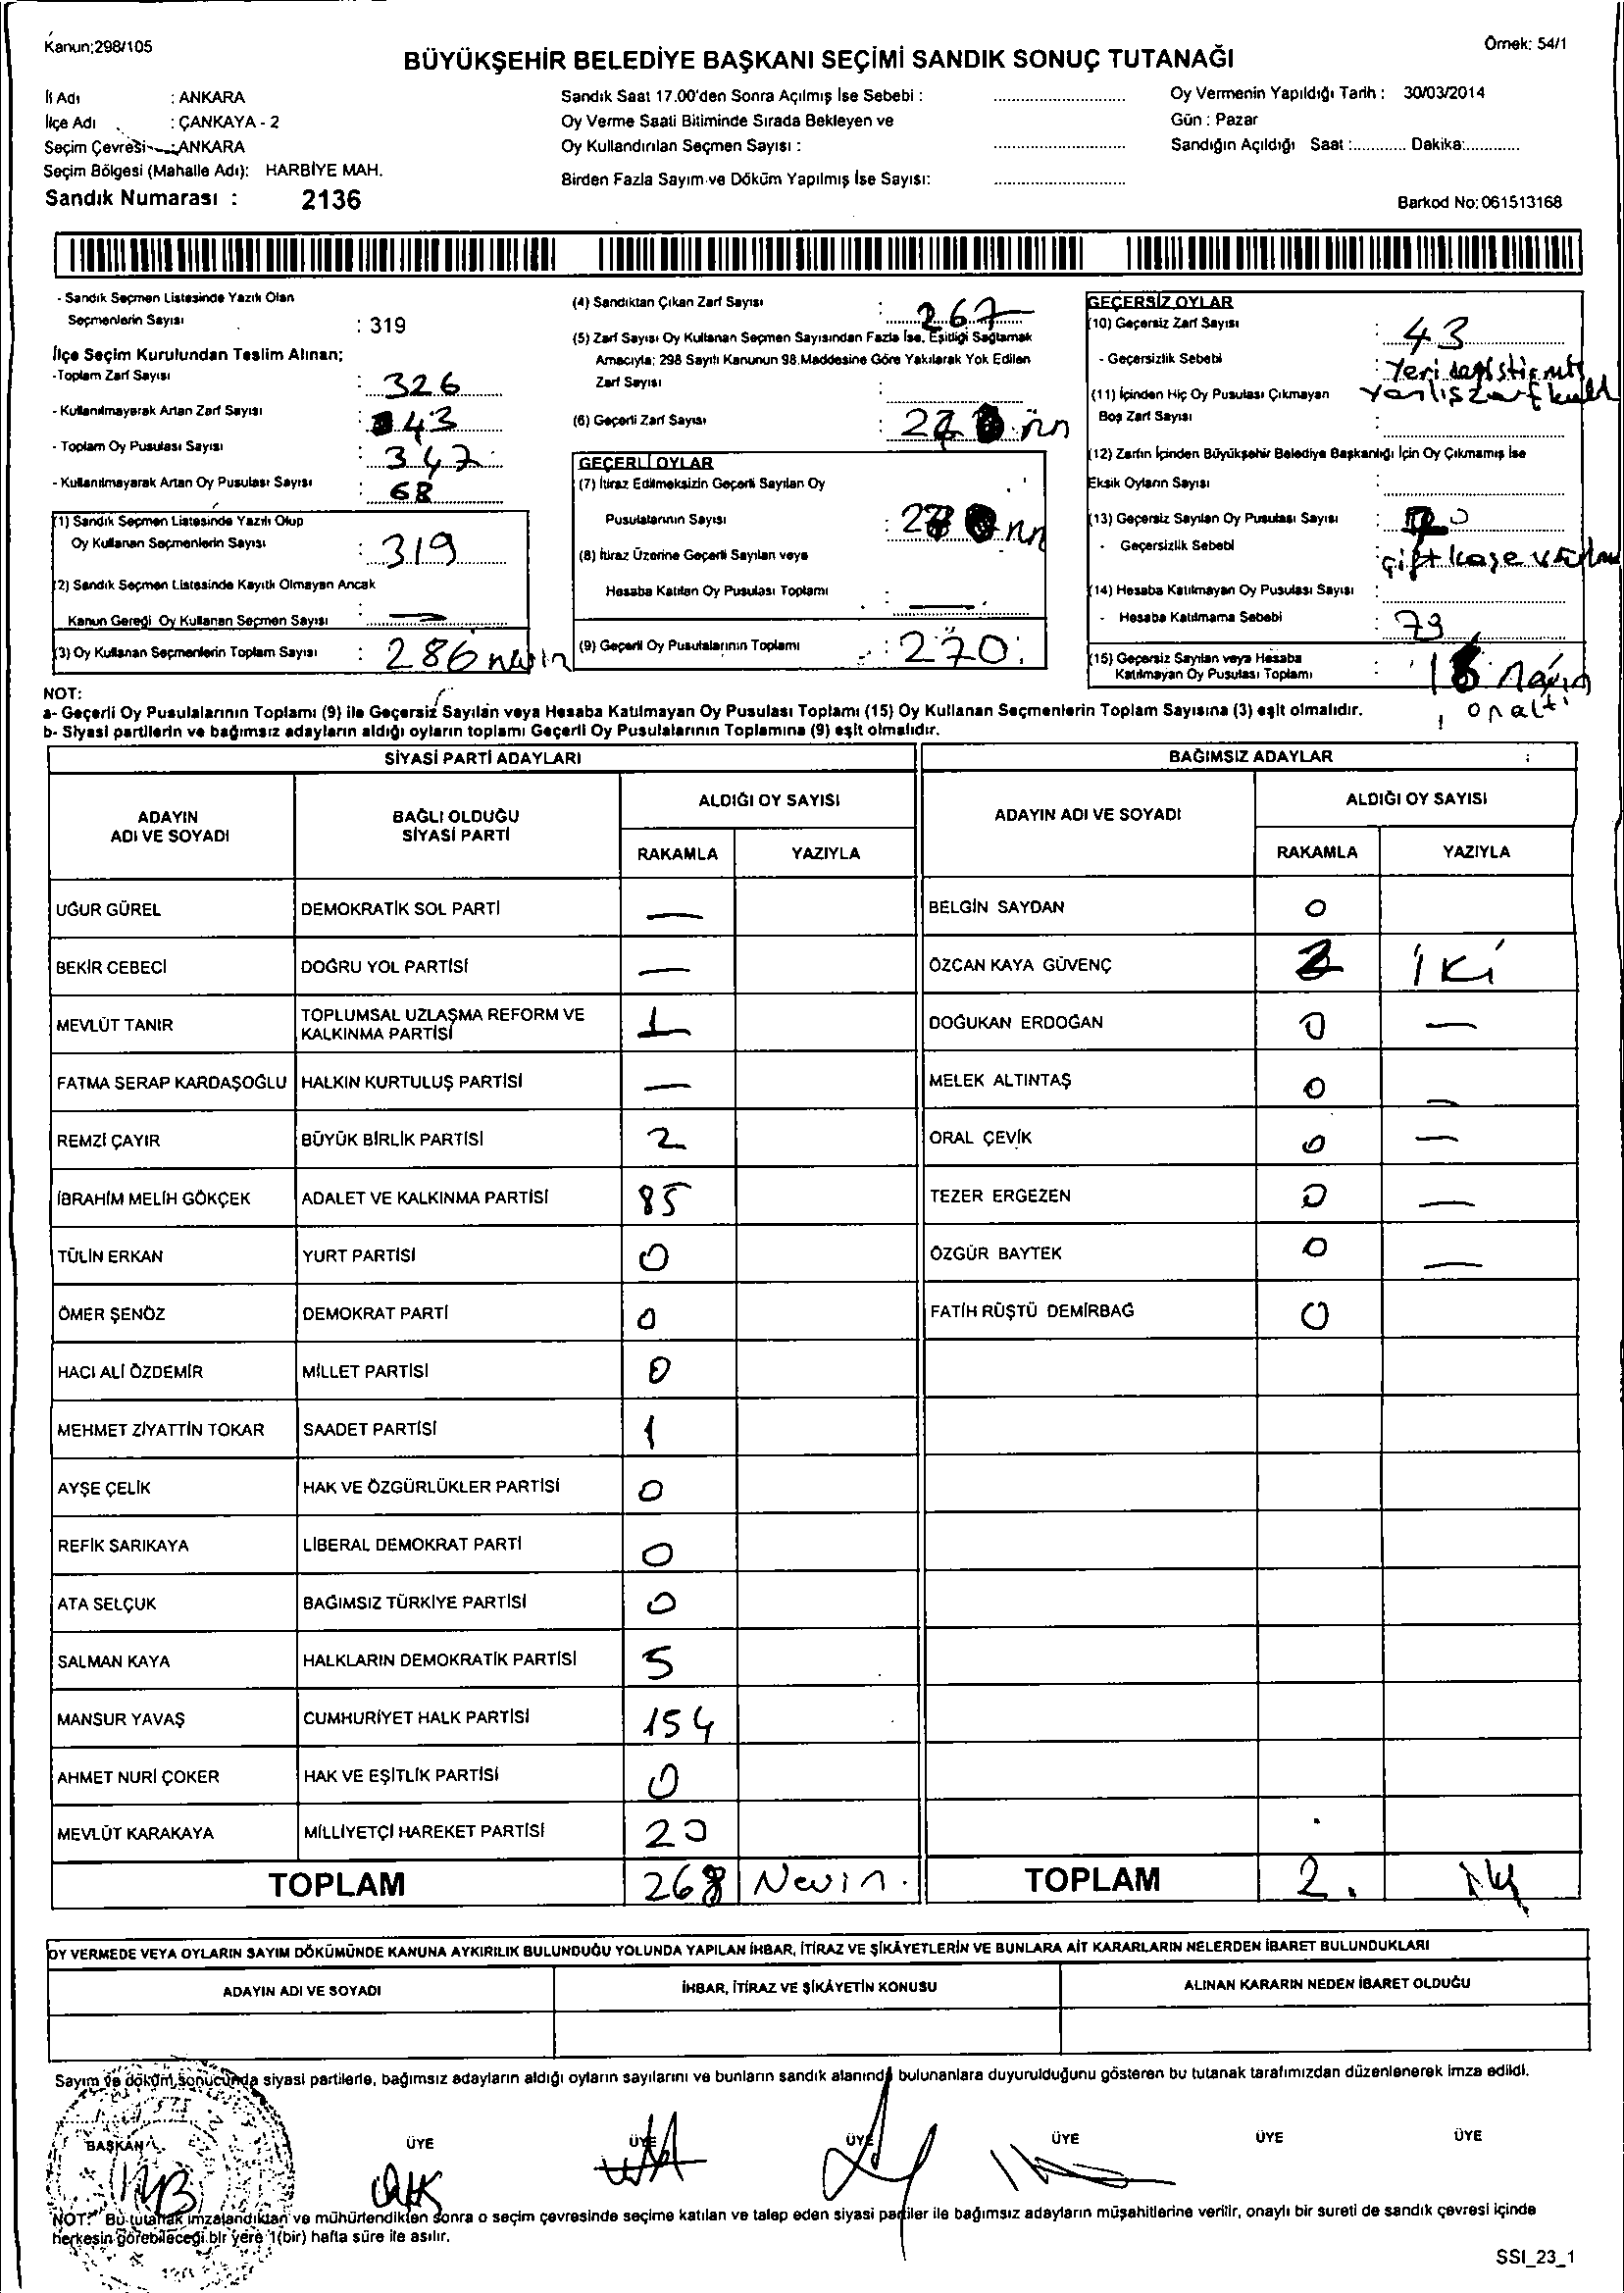 Kanun;298/105
Örnek: 54/1
BÜYÜKŞEHİR BELEDİYE BAŞKANI SEÇİMİ SANDIK SONUÇ TUTANAĞI
İl Adı : ANKARA
İlçe Adı : ÇANKAYA - 2
Seçim Çevresi : ANKARA
Seçim Bölgesi (Mahalle Adı): HARBİYE MAH.
Sandık Numarası : 2136
Sandık Saat 17.00'den Sonra Açılmış İse Sebebi :
Oy Verme Saati Bitiminde Sırada Bekleyen ve
Oy Kullandırılan Seçmen Sayısı :
Birden Fazla Sayım ve Döküm Yapılmış İse Sayısı:
Oy Vermenin Yapıldığı Tarih : 30/03/2014
Gün : Pazar
Sandığın Açıldığı Saat :............ Dakika:............
Barkod No: 061513168
- Sandık Seçmen Listesinde Yazılı Olan
Seçmenlerin Sayısı : 319
İlçe Seçim Kurulundan Teslim Alınan;
-Toplam Zarf Sayısı : 326
- Kullanılmayarak Artan Zarf Sayısı : 43
- Toplam Oy Pusulası Sayısı : 347
- Kullanılmayarak Artan Oy Pusulası Sayısı : 68
(1) Sandık Seçmen Listesinde Yazılı Olup
Oy Kullanan Seçmenlerin Sayısı : 319
(2) Sandık Seçmen Listesinde Kayıtlı Olmayan Ancak
Kanun Gereği Oy Kullanan Seçmen Sayısı : —
(3) Oy Kullanan Seçmenlerin Toplam Sayısı : 286
(4) Sandıktan Çıkan Zarf Sayısı : 267
(5) Zarf Sayısı Oy Kullanan Seçmen Sayısından Fazla İse, Eşitliği Sağlamak
Amacıyla; 298 Sayılı Kanunun 98.Maddesine Göre Yakılarak Yok Edilen
Zarf Sayısı :
(6) Geçerli Zarf Sayısı :
GEÇERLİ OYLAR
(7) İtiraz Edilmeksizin Geçerli Sayılan Oy
Pusulalarının Sayısı :
(8) İtiraz Üzerine Geçerli Sayılan veya
Hesaba Katılan Oy Pusulası Toplamı : —
(9) Geçerli Oy Pusulalarının Toplamı : 270
GEÇERSİZ OYLAR
(10) Geçersiz Zarf Sayısı : 43
- Geçersizlik Sebebi : Yeri
(11) İçinden Hiç Oy Pusulası Çıkmayan
Boş Zarf Sayısı :
(12) Zarfın İçinden Büyükşehir Belediye Başkanlığı İçin Oy Çıkmamış İse
Eksik Oyların Sayısı :
(13) Geçersiz Sayılan Oy Pusulası Sayısı :
- Geçersizlik Sebebi : çift kaşe
(14) Hesaba Katılmayan Oy Pusulası Sayısı :
- Hesaba Katılmama Sebebi : 73
(15) Geçersiz Sayılan veya Hesaba
Katılmayan Oy Pusulası Toplamı : 16
onaltı
NOT:
a- Geçerli Oy Pusulalarının Toplamı (9) ile Geçersiz Sayılan veya Hesaba Katılmayan Oy Pusulası Toplamı (15) Oy Kullanan Seçmenlerin Toplam Sayısına (3) eşit olmalıdır.
b- Siyasi partilerin ve bağımsız adayların aldığı oyların toplamı Geçerli Oy Pusulalarının Toplamına (9) eşit olmalıdır.
SİYASİ PARTİ ADAYLARI
BAĞIMSIZ ADAYLAR
ADAYIN ADI VE SOYADI
BAĞLI OLDUĞU SİYASİ PARTİ
ALDIĞI OY SAYISI
RAKAMLA YAZIYLA
ADAYIN ADI VE SOYADI
ALDIĞI OY SAYISI
RAKAMLA YAZIYLA
UĞUR GÜREL DEMOKRATİK SOL PARTİ — BELGİN SAYDAN 0
BEKİR CEBECİ DOĞRU YOL PARTİSİ — ÖZCAN KAYA GÜVENÇ 2 İKİ
MEVLÜT TANIR TOPLUMSAL UZLAŞMA REFORM VE KALKINMA PARTİSİ 1 DOĞUKAN ERDOĞAN 0 —
FATMA SERAP KARDAŞOĞLU HALKIN KURTULUŞ PARTİSİ — MELEK ALTINTAŞ 0 —
REMZİ ÇAYIR BÜYÜK BİRLİK PARTİSİ 2 ORAL ÇEVİK 0 —
İBRAHİM MELİH GÖKÇEK ADALET VE KALKINMA PARTİSİ 85 TEZER ERGEZEN 0 —
TÜLİN ERKAN YURT PARTİSİ 0 ÖZGÜR BAYTEK 0 —
ÖMER ŞENÖZ DEMOKRAT PARTİ 0 FATİH RÜŞTÜ DEMİRBAĞ 0
HACI ALİ ÖZDEMİR MİLLET PARTİSİ 0
MEHMET ZİYATTİN TOKAR SAADET PARTİSİ 1
AYŞE ÇELİK HAK VE ÖZGÜRLÜKLER PARTİSİ 0
REFİK SARIKAYA LİBERAL DEMOKRAT PARTİ 0
ATA SELÇUK BAĞIMSIZ TÜRKİYE PARTİSİ 0
SALMAN KAYA HALKLARIN DEMOKRATİK PARTİSİ 5
MANSUR YAVAŞ CUMHURİYET HALK PARTİSİ 154
AHMET NURİ ÇOKER HAK VE EŞİTLİK PARTİSİ 0
MEVLÜT KARAKAYA MİLLİYETÇİ HAREKET PARTİSİ 20
TOPLAM 268 Nevin. TOPLAM 2.
OY VERMEDE VEYA OYLARIN SAYIM DÖKÜMÜNDE KANUNA AYKIRILIK BULUNDUĞU YOLUNDA YAPILAN İHBAR, İTİRAZ VE ŞİKÂYETLERİN VE BUNLARA AİT KARARLARIN NELERDEN İBARET BULUNDUKLARI
ADAYIN ADI VE SOYADI İHBAR, İTİRAZ VE ŞİKÂYETİN KONUSU ALINAN KARARIN NEDEN İBARET OLDUĞU
Sayım ve döküm sonucunda siyasi partilerle, bağımsız adayların aldığı oyların sayılarını ve bunların sandık alanında bulunanlara duyurulduğunu gösteren bu tutanak tarafımızdan düzenlenerek imza edildi.
BAŞKAN ÜYE ÜYE ÜYE ÜYE ÜYE ÜYE
NOT: Bu tutanak imzalandıktan ve mühürlendikten sonra o seçim çevresinde seçime katılan ve talep eden siyasi partiler ile bağımsız adayların müşahitlerine verilir, onaylı bir sureti de sandık çevresi içinde
herkesin görebileceği bir yere 1(bir) hafta süre ile asılır.
SSI_23_1